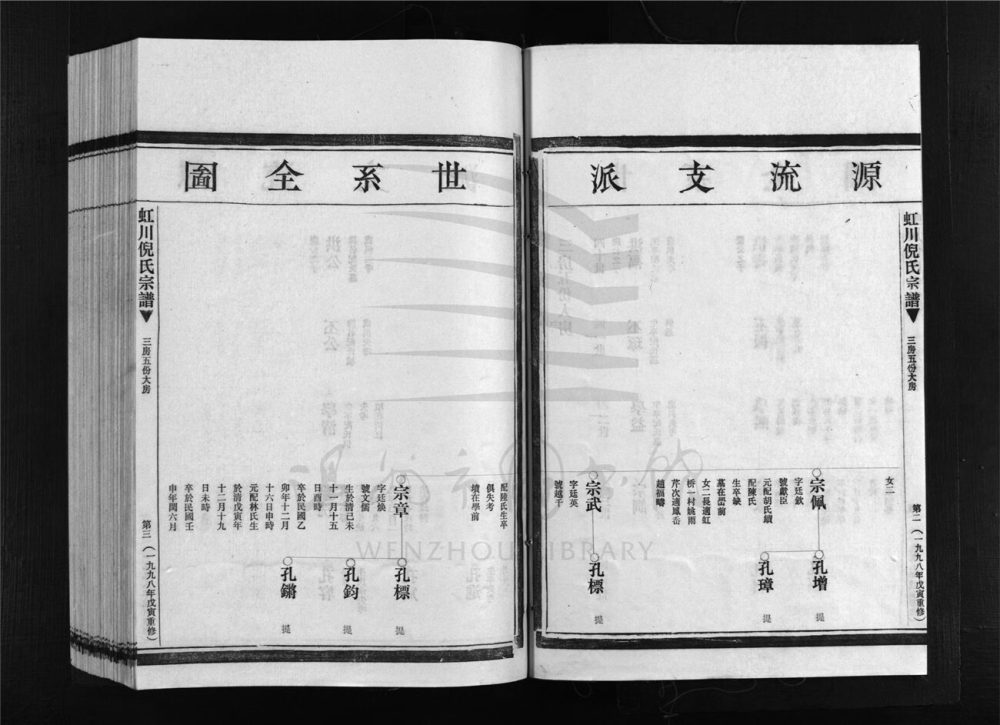 源流支派
虹川倪氏宗譜
三房五份大房
第二(一九九八年戊寅重修)
女二
宗佩
字廷欽
號獻臣
元配胡氏續
配陳氏
生卒缺
墓在嶴前
女二長適虹
橋一村姚雨
芹次適鳳岙
趙福疇
孔增
提
孔璋
提
宗武
字廷英
號越千
孔標
提
世系全圖
配陳氏生卒
俱失考
墳在學前
宗章
字廷煥
號文儒
生於清己未
十一月十五
日酉時
卒於民國乙
卯年十二月
十六日申時
元配林氏生
於清戊寅年
十二月十九
日未時
卒於民國壬
申年閏六月
孔標
提
孔鈞
提
孔鏘
提
虹川倪氏宗譜
三房五份大房
第三(一九九八年戊寅重修)
WENZHOU LIBRARY